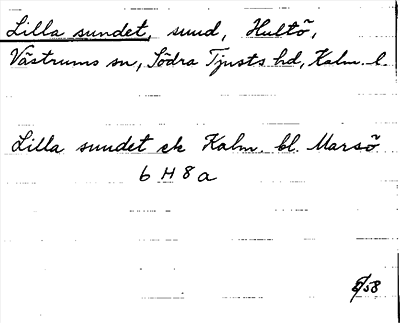 Lilla sundet, sund, Hultö,
Västrums sn, Södra Tjusts hd, Kalm. l.
Lilla sundet ek Kalm. bl. Marsö
6 H 8 a